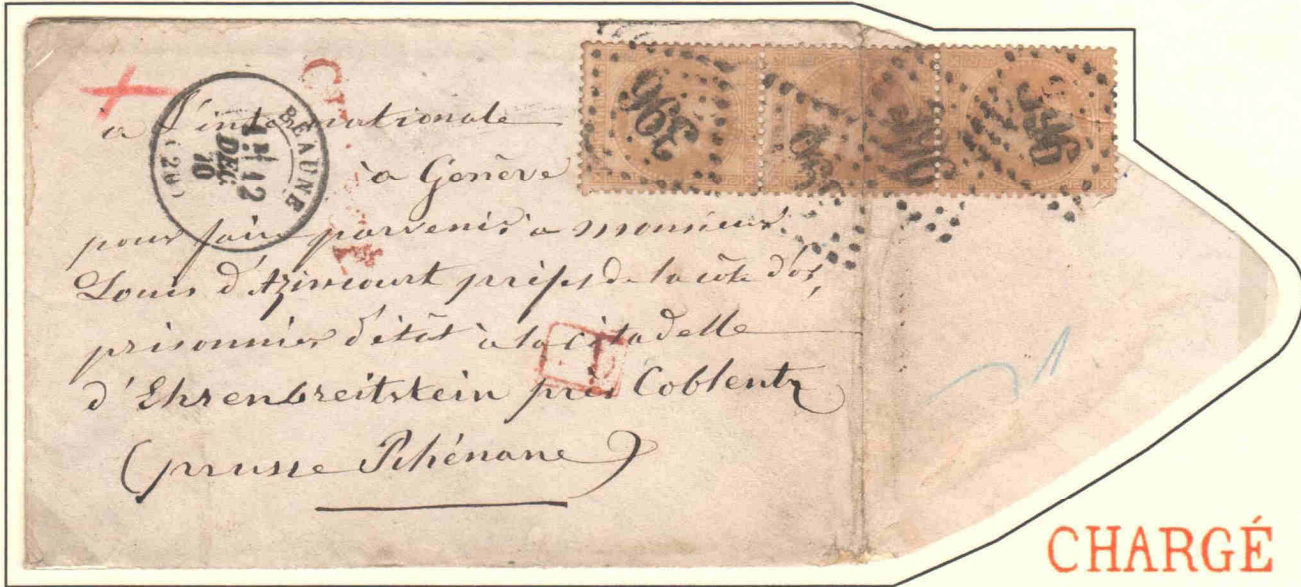 CHARGÉ
396
396
396
BEAUNE
12
DEC.
70
(20)
a l'internationale
à Genève
pour faire parvenir a monsieur
Louis d'Azincourt préfet de la côte d'or,
prisonnier d'état à la citadelle
d'Ehrenbreitstein près Coblentz
(prusse Rhénane)